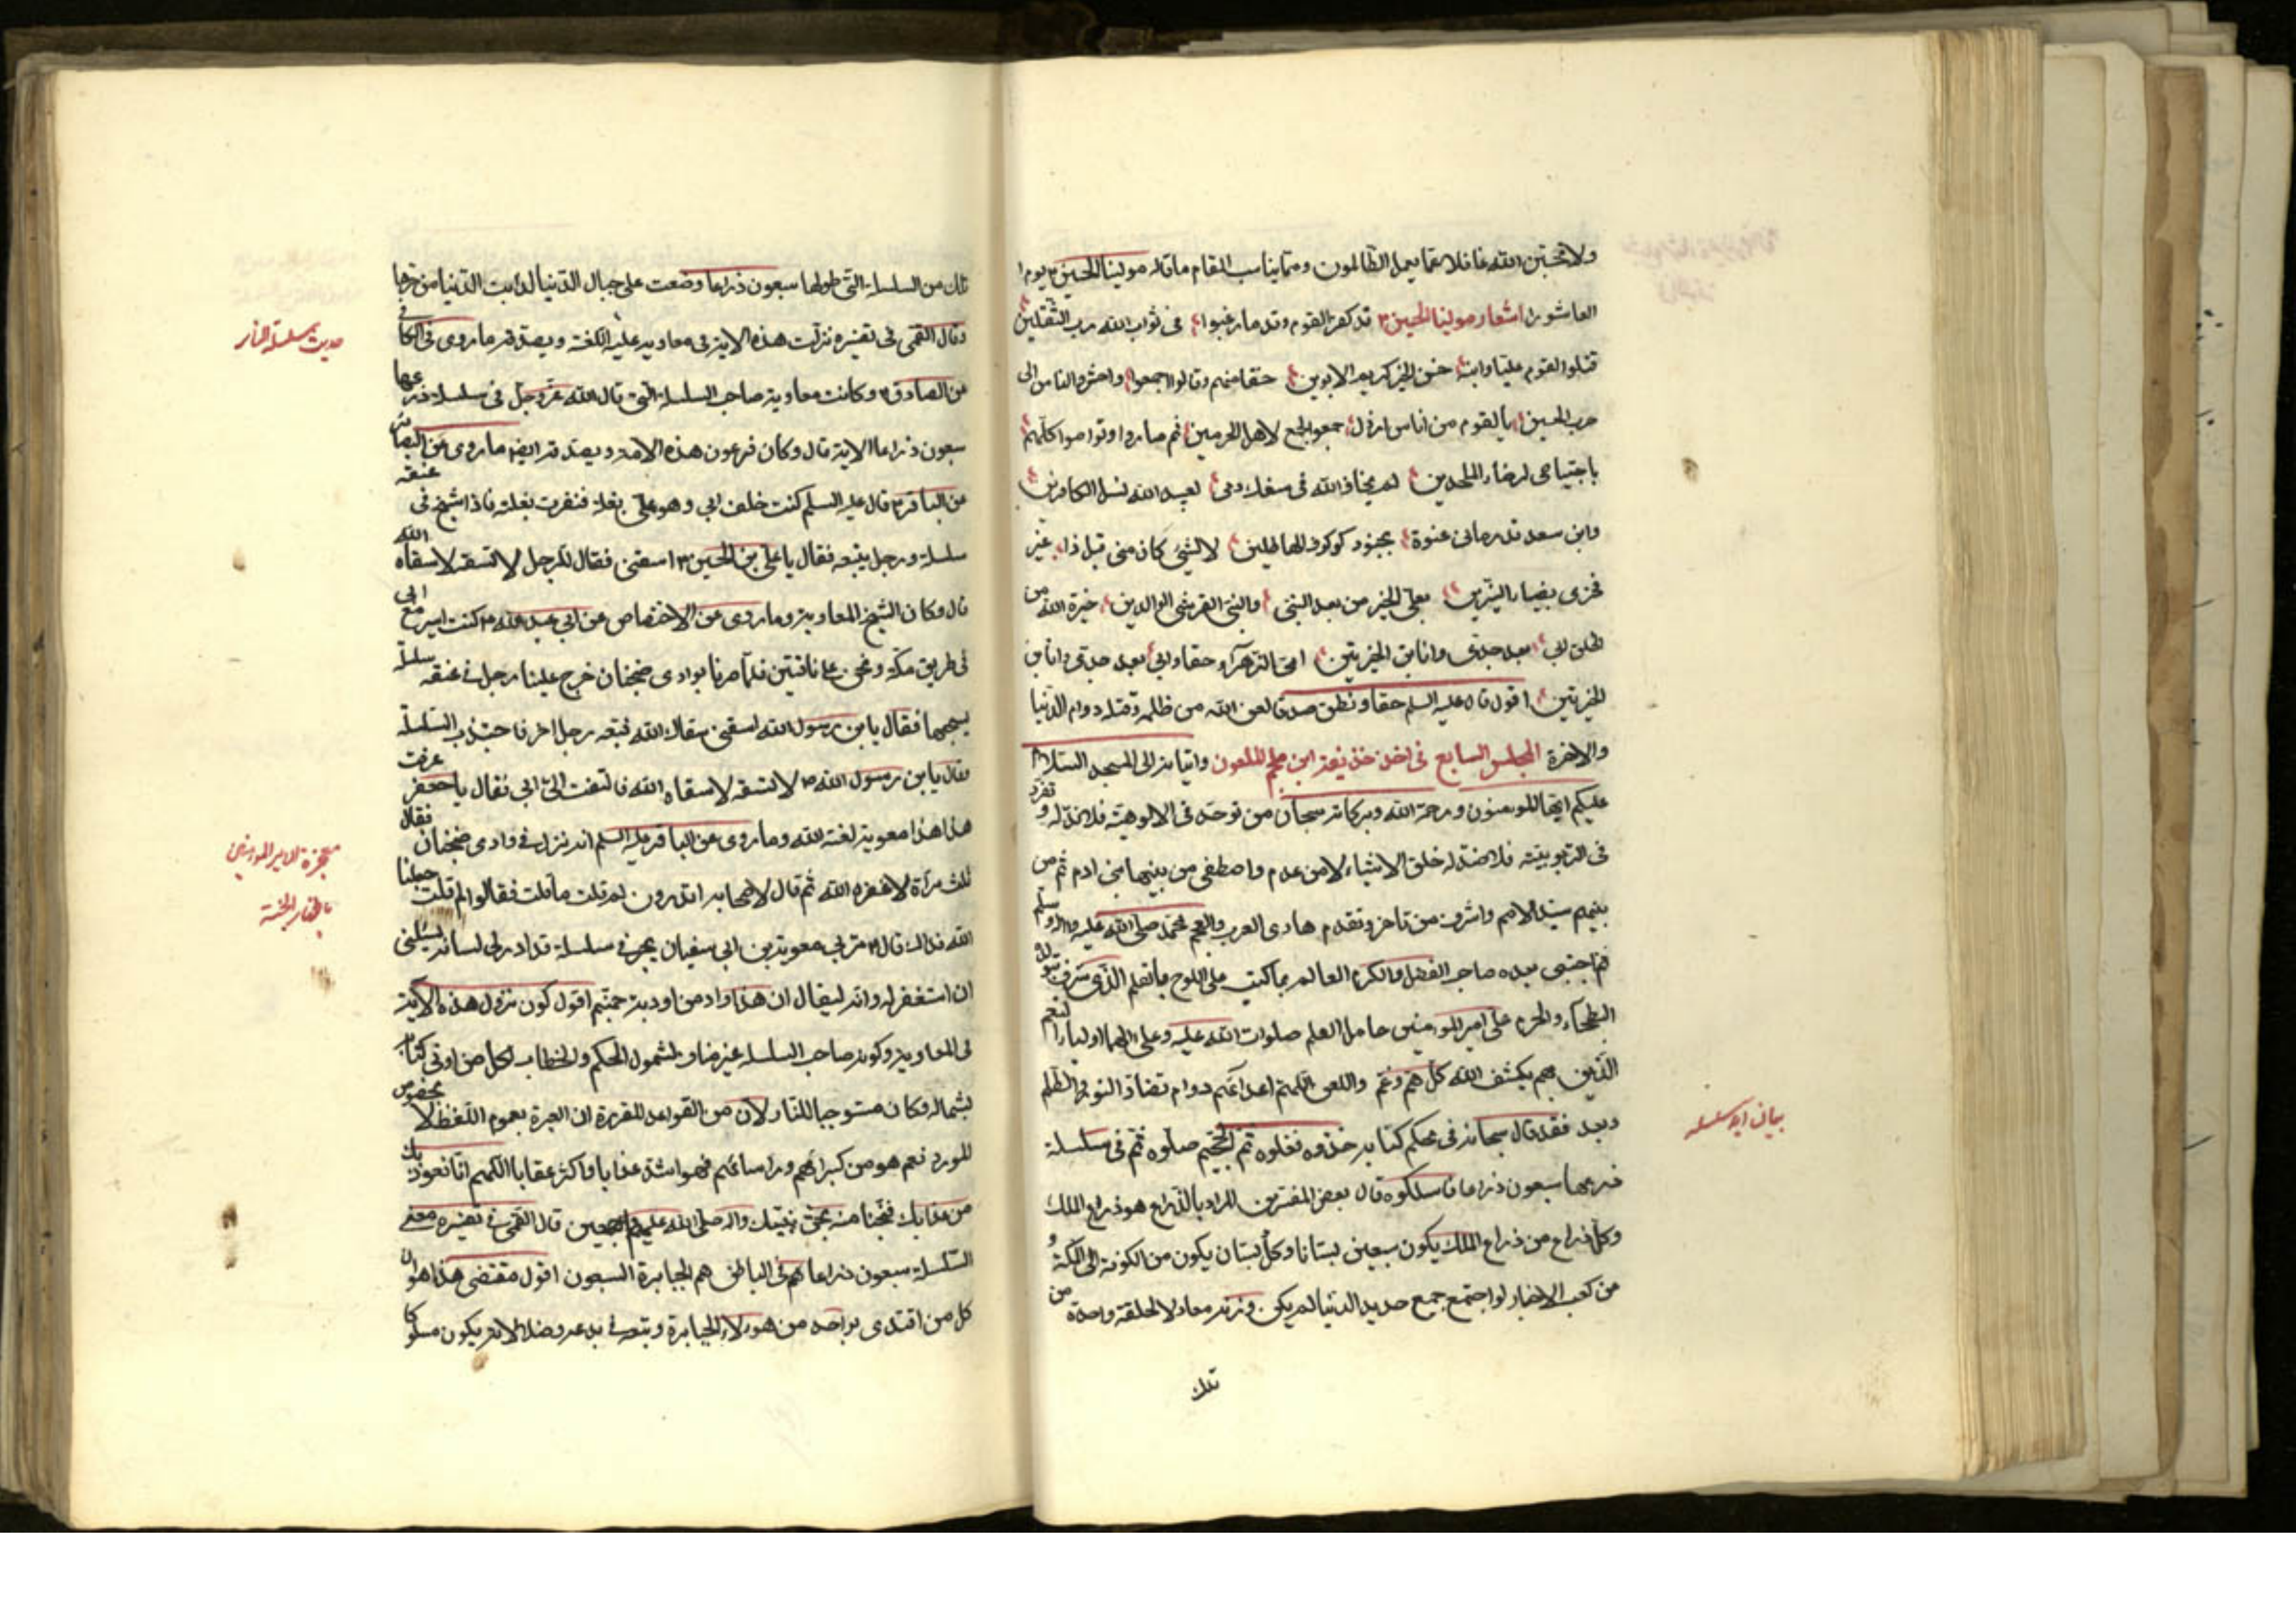 ولا تحسبن الله غافلا عما يعمل الظالمون ومما يناسب المقام ما قاله مولينا الحسين ع يوم
العاشورا اشعار مولينا الحسين ع قد كفر القوم وقدما رغبوا عن ثواب الله رب الثقلين
قتلوا القوم عليا وابنه حسن الخير كريم الابوين حنقا منهم وقالوا اجمعوا واحشروا الناس الى
حرب الحسين يا لقوم من اناس ارذل جمعوا الجمع لاهل الحرمين ثم صاروا وتواصوا كلهم
باجتياحي لرضاء الملحدين لم يخافوا الله في سفك دمي لعبيد الله نسل الكافرين
وابن سعد قد رماني عنوة بجنود كوكوف الهاطلين لا لشيء كان مني قبل ذا غير
فخري بضياء النيرين بعلي الخير من بعد النبي والنبي القرشي الوالدين خيرة الله من
الخلق ابي بعد جدي وانا ابن الخيرتين امي الزهراء حقا وابي بعد جدي وانا بن
الخيرتين اقول قال عليه السلم حقا ونطق صدقا لعن الله من ظلمه وقتله دوام الدنيا
والاخرة المجلس السابع في اخذ حذيفة ابن ملجم الملعون واتيانه الى المسجد السلام
عليكم ايها المومنون ورحمة الله وبركاته سبحان من توحد في الالوهية فلا ند له و تفرد
في الربوبية فلا ضد له خلق الاشياء لا من عدم واصطفى من بينها بني ادم ثم من
بينهم سيد الامم واشرف من تاخر وتقدم هادي العرب والعجم محمد صلى الله عليه واله وسلم
ثم اجتبى بعده صاحب الفضل والكرم العالم بما كتب على اللوح بالقلم الذي شرف بتولده
البطحاء والحرم علي امير المومنين حامل العلم صلوات الله عليه وعلى الهما اولياء النعم
الذين بهم يكشف الله كل هم وغم واللعن على اعدائهم دوام تضاد النور والظلم
وبعد فقد قال سبحانه في محكم كتابه خذوه فغلوه ثم الجحيم صلوه ثم في سلسلة
ذرعها سبعون ذراعا فاسلكوه قال بعض المفسرين المراد بالذراع هو ذراع الملك
وكل ذراع من ذراع الملك يكون سبعين بستانا وكل بستان يكون من الكوفة الى المكة و
من كعب الاخبار لو اجتمع جميع حديد الدنيا لم يكن وزنه معادلا لحلقة واحدة من
تلك
بيان ايه سلسله
تلك من السلسلة التي طولها سبعون ذراعا وضعت على جبال الدنيا لذابت الدنيا من حرها
وقال القمي في تفسيره نزلت هذه الاية في معاوية عليه اللعنة ويصدقه ما روي في الكافي
عن الصادق ع وكانت معاوية صاحب السلسلة التي قال الله عز وجل في سلسلة ذرعها
سبعون ذراعا الاية قال وكان فرعون هذه الامة ويصدقه ايضا ما روي عن البصائر
عن الباقر ع قال عليه السلم كنت خلف ابي وهو على بغلة فنفرت بغلته فاذا شيخ في عنقه
سلسلة ورجل يتبعه فقال يا علي بن الحسين ع اسقني فقال الرجل لا تسقه لا سقاه الله
قال وكان الشيخ المعاوية وما روي عن الاختصاص عن ابي عبد الله ع كنت اسير مع ابي
في طريق مكة ونحن على ناقتين فلما صرنا بوادي ضجنان خرج علينا رجل في عنقه سلسلة
يسحبها فقال يا بن رسول الله اسقني سقاك الله فتبعه رجل اخر فاجتذب السلسلة
وقال يا بن رسول الله لا تسقه لا سقاه الله فالتفت الي ابي فقال يا جعفر عرفت
هذا هذا معوية لعنه الله وما روي عن الباقر عليه السلم انه نزل في وادي ضجنان فقال
ثلث مراة لا غفره الله ثم قال لاصحابه اتدرون لم قلت ما قلت فقالوا لم قلت جعلنا
الله فداك قال ع مر بي معوية بن ابي سفيان يجر في سلسلة قد ادلى لسانه يسئلني
ان استغفر له وانه ليقال ان هذا واد من اودية جهنم اقول كون نزول هذه الاية
في المعاوية وكونه صاحب السلسلة غير مناف لشمول الحكم والخطاب لكل من اوتي كتابه
بشماله وكان مستوجبا للنار لان من القواعد المقررة ان العبرة بعموم اللفظ لا بخصوص
المورد نعم هو من كبرائهم وروسائهم فهو اشد عذابا واكثر عقابا اللهم انا نعوذ بك
من عذابك فنجنا منه بحق نبيك واله صلى الله عليهم اجمعين قال القمي في تفسيره معنى
السلسلة سبعون ذراعا هم في الباطن هم الجبابرة السبعون اقول مقتضى هذا هو ان
كل من اقتدى بواحد من هولاء الجبابرة وتبعه في بدعه وضلالاته يكون مسلوكا
حديث سلسلة النار
معجزة الامير المومنين